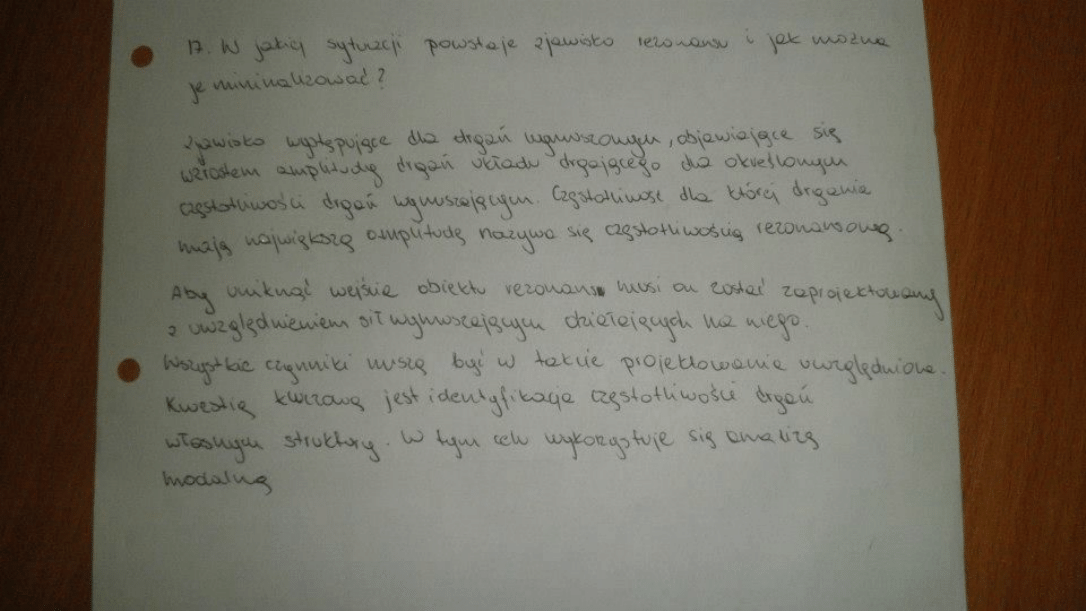 17. W jakiej sytuacji powstaje zjawisko rezonansu i jak można
je minimalizować?
Zjawisko występujące dla drgań wymuszonym, objawiające się
wzrostem amplitudy drgań układu drgającego dla określonym
częstotliwości drgań wymuszającym. Częstotliwość dla której drgania
mają największą amplitudę nazywa się częstotliwością rezonansową.
Aby uniknąć wejście obiektu rezonans musi on zostać zaprojektowany
z uwzględnieniem sił wymuszającym działających na niego.
Wszystkie czynniki muszą być w takcie projektowania uwzględnione.
Kwestią kluczową jest identyfikacja częstotliwości drgań
własnym struktury. W tym celu wykorzystuje się analizą
modalną